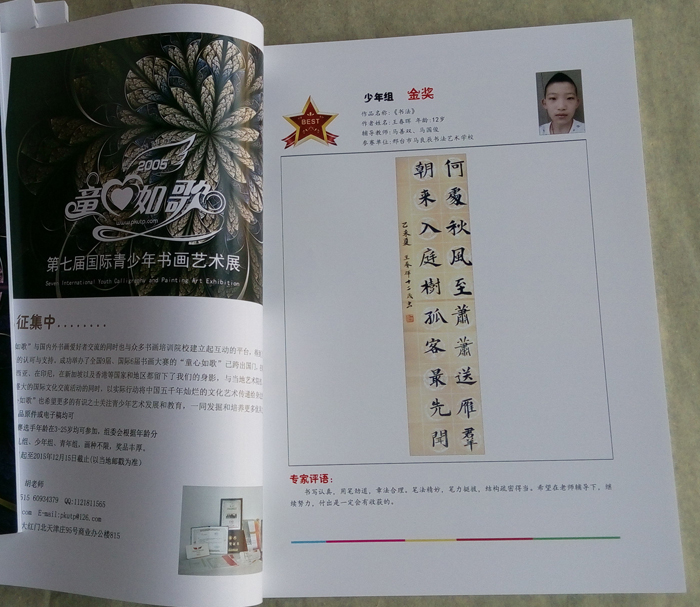 2005
童心如歌
www.pkutp.com
第七届国际青少年书画艺术展
Seven International Youth Calligraphy and Painting Art Exhibition
征集中........
如歌"与国内外书画爱好者交流的同时也与众多书画培训院校建立起互动的平台,
的认可与支持,成功举办了全国9届,国际6届书画大赛的"童心如歌"已跨出国门,
西亚、在印尼、在新加坡以及香港等国家和地区都留下了我们的身影,与当地艺术院
重大的国际文化交流活动的同时,以实际行动将中国五千年灿烂的文化艺术传递给
如歌"也希望更多的有识之士关注青少年艺术发展和教育,一同发掘和培养更多
品原件或电子稿均可
赛选手年龄在3-25岁均可参加,组委会根据年龄分
儿组、少年组、青年组,画种不限,奖品丰厚。
起至2015年12月15日截止(以当地邮戳为准)
胡老师
515 60934379 QQ:1121811565
com E-mail:pkutp@126.com
大红门北天津庄95号商业办公楼815
BEST
少年组 金奖
作品名称:《书法》
作者姓名:王春晖 年龄:12岁
辅导教师:马春双、马国俊
参赛单位:邢台市马良辰书法艺术学校
何處秋風至蕭蕭送雁羣
朝来入庭樹孤客最先聞
乙未夏 王春暉十二歲書
专家评语:
书写认真,用笔劲道,章法合理。笔法精妙,笔力挺拔,结构疏密得当。希望在老师辅导下,继
续努力,付出是一定会有收获的。